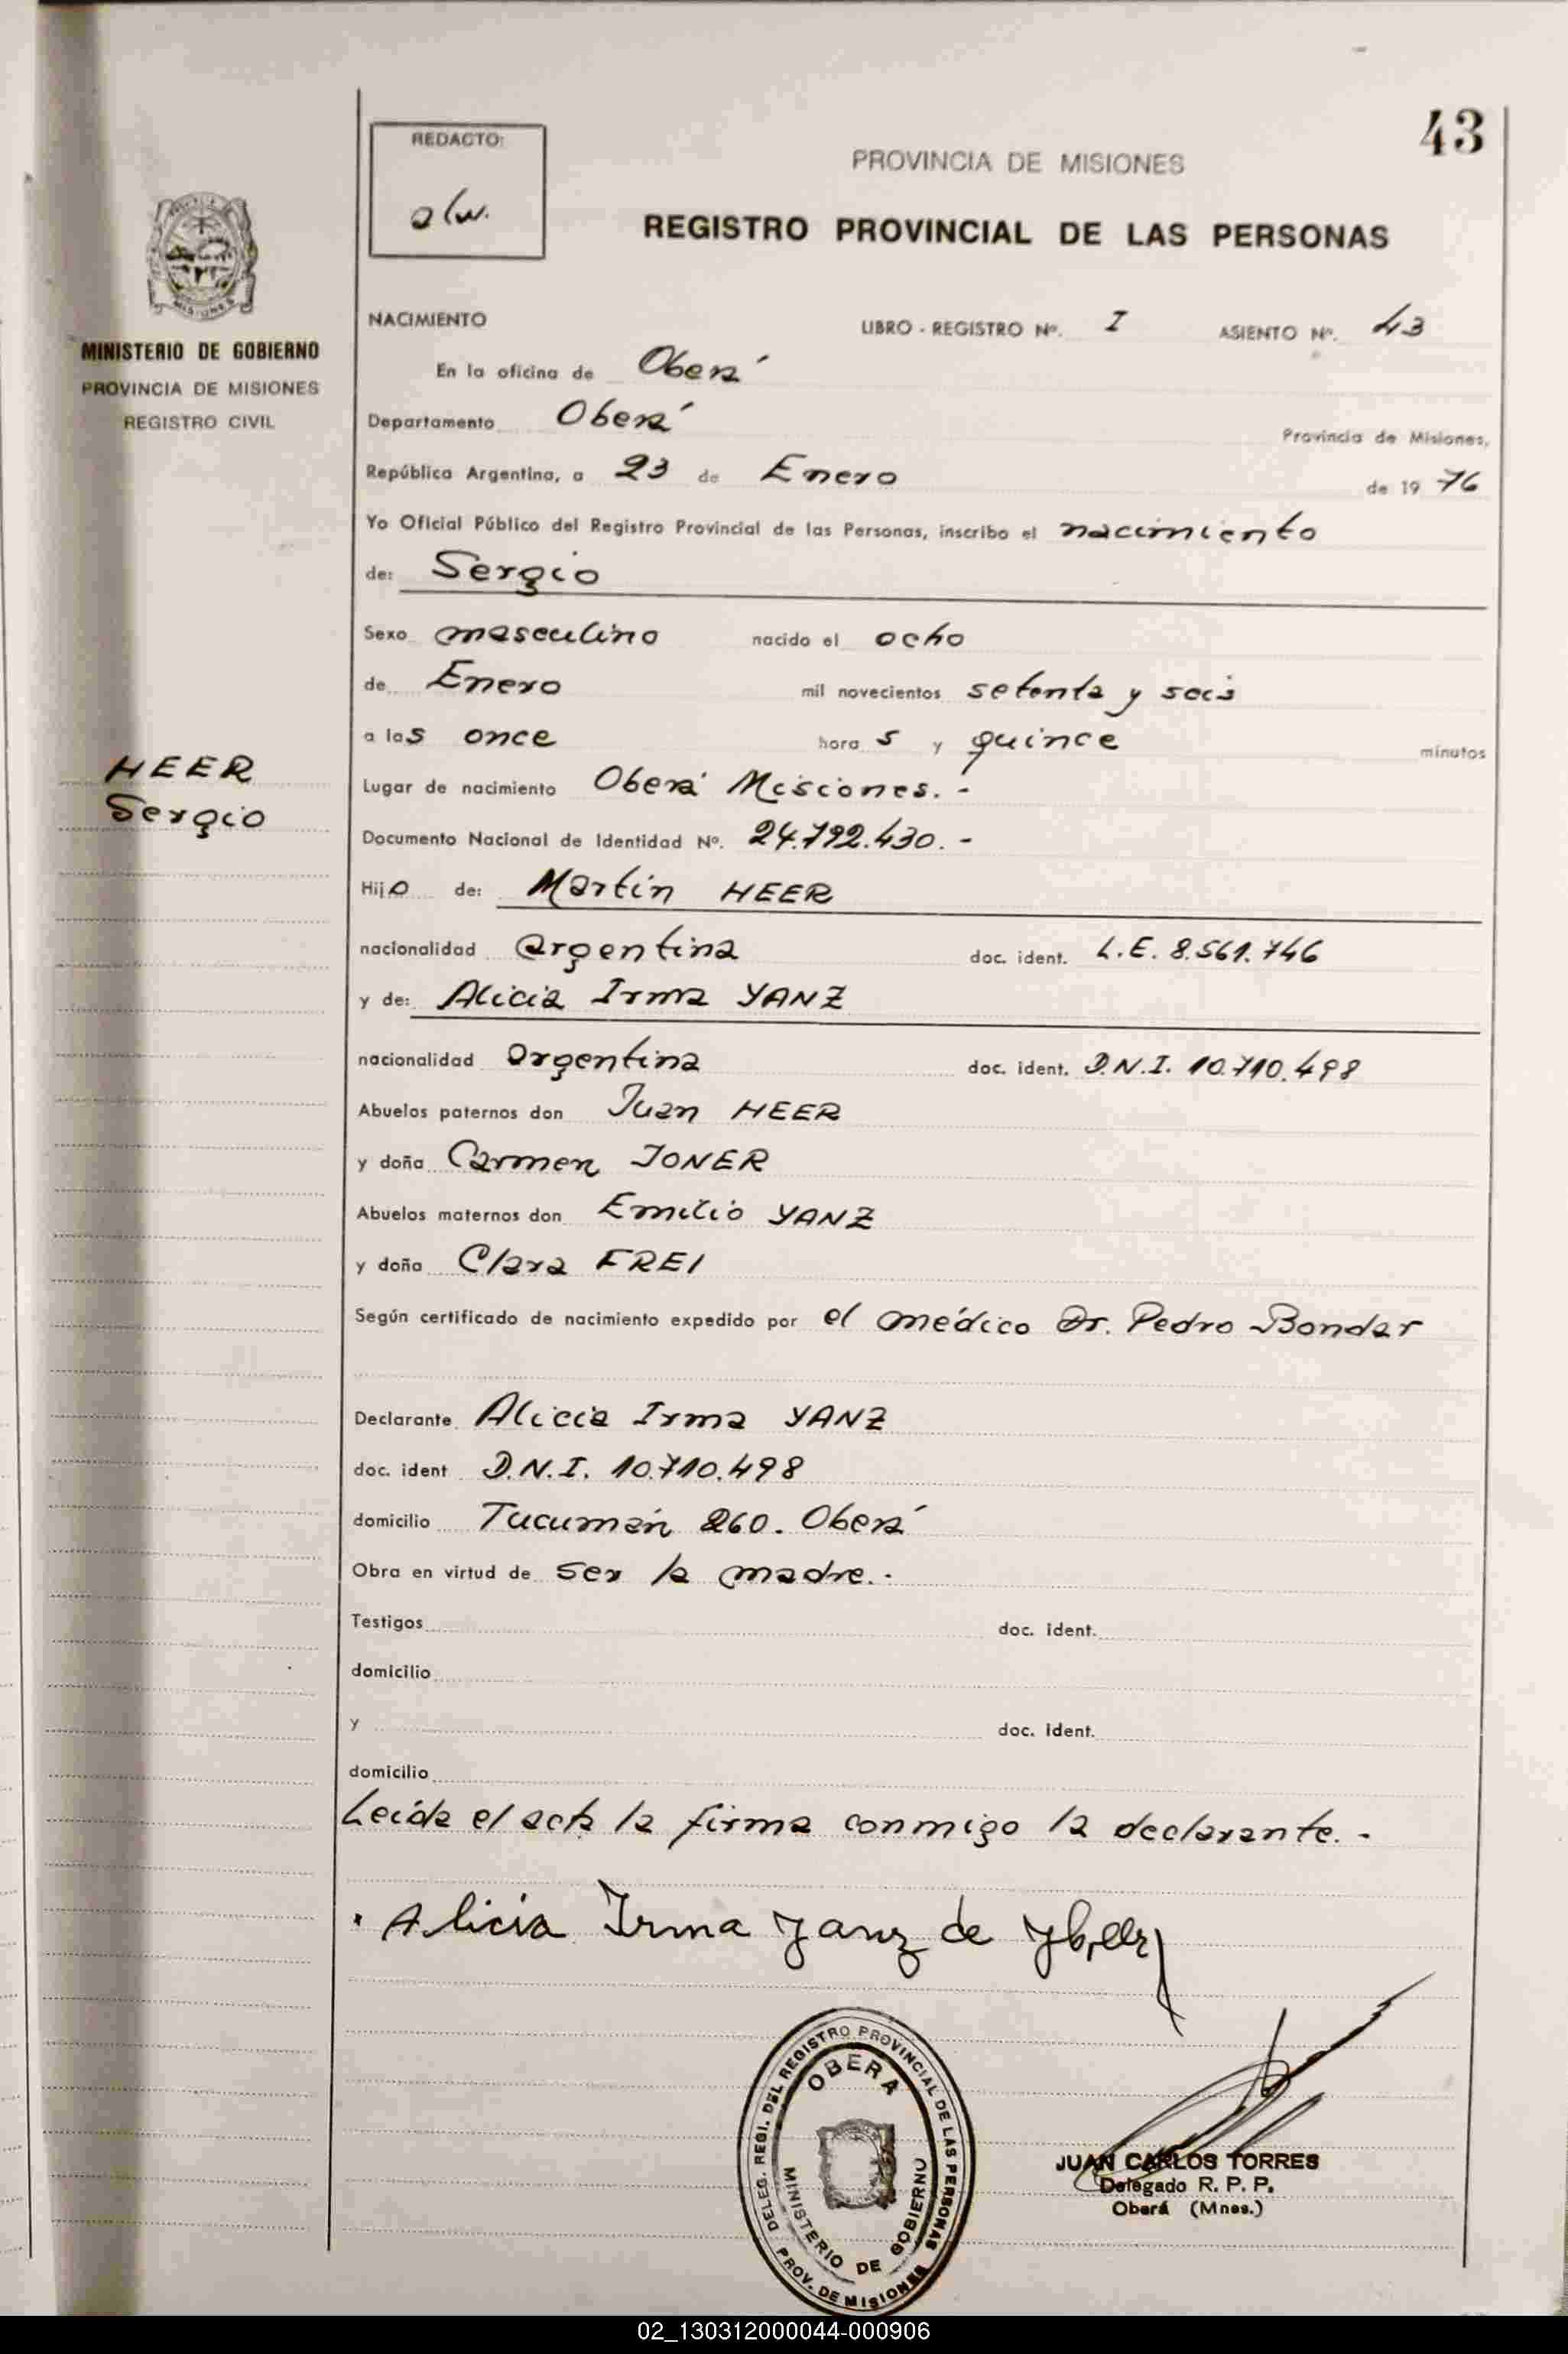 43
REDACTO:
alw.
PROVINCIA DE MISIONES
REGISTRO PROVINCIAL DE LAS PERSONAS
MISIONES
MINISTERIO DE GOBIERNO
PROVINCIA DE MISIONES
REGISTRO CIVIL
HEER
Sergio
NACIMIENTO LIBRO - REGISTRO Nº. I ASIENTO Nº. 43
En la oficina de Oberá
Departamento Oberá Provincia de Misiones,
República Argentina, a 23 de Enero de 19 76
Yo Oficial Público del Registro Provincial de las Personas, inscribo el nacimiento
de: Sergio
Sexo masculino nacido el ocho
de Enero mil novecientos setenta y seis
a las once horas y quince minutos
Lugar de nacimiento Oberá Misiones. -
Documento Nacional de Identidad Nº. 24.792.430. -
Hijo de: Martín HEER
nacionalidad argentina doc. ident. L.E. 8.561.746
y de: Alicia Irma YANZ
nacionalidad argentina doc. ident. D.N.I. 10.710.498
Abuelos paternos don Juan HEER
y doña Carmen JONER
Abuelos maternos don Emilio YANZ
y doña Clara FREI
Según certificado de nacimiento expedido por el médico Dr. Pedro Bondar
Declarante Alicia Irma YANZ
doc. ident D.N.I. 10.710.498
domicilio Tucumán 260. Oberá
Obra en virtud de ser la madre. -
Testigos doc. ident.
domicilio
y doc. ident.
domicilio
Leída el acta la firma conmigo la declarante. -
Alicia Irma Yanz de
DELEG. REGI. DEL REGISTRO PROVINCIAL DE LAS PERSONAS
OBERA
MINISTERIO DE GOBIERNO
PROV. DE MISIONES
JUAN CARLOS TORRES
Delegado R. P. P.
Oberá (Mnes.)
02_130312000044-000906